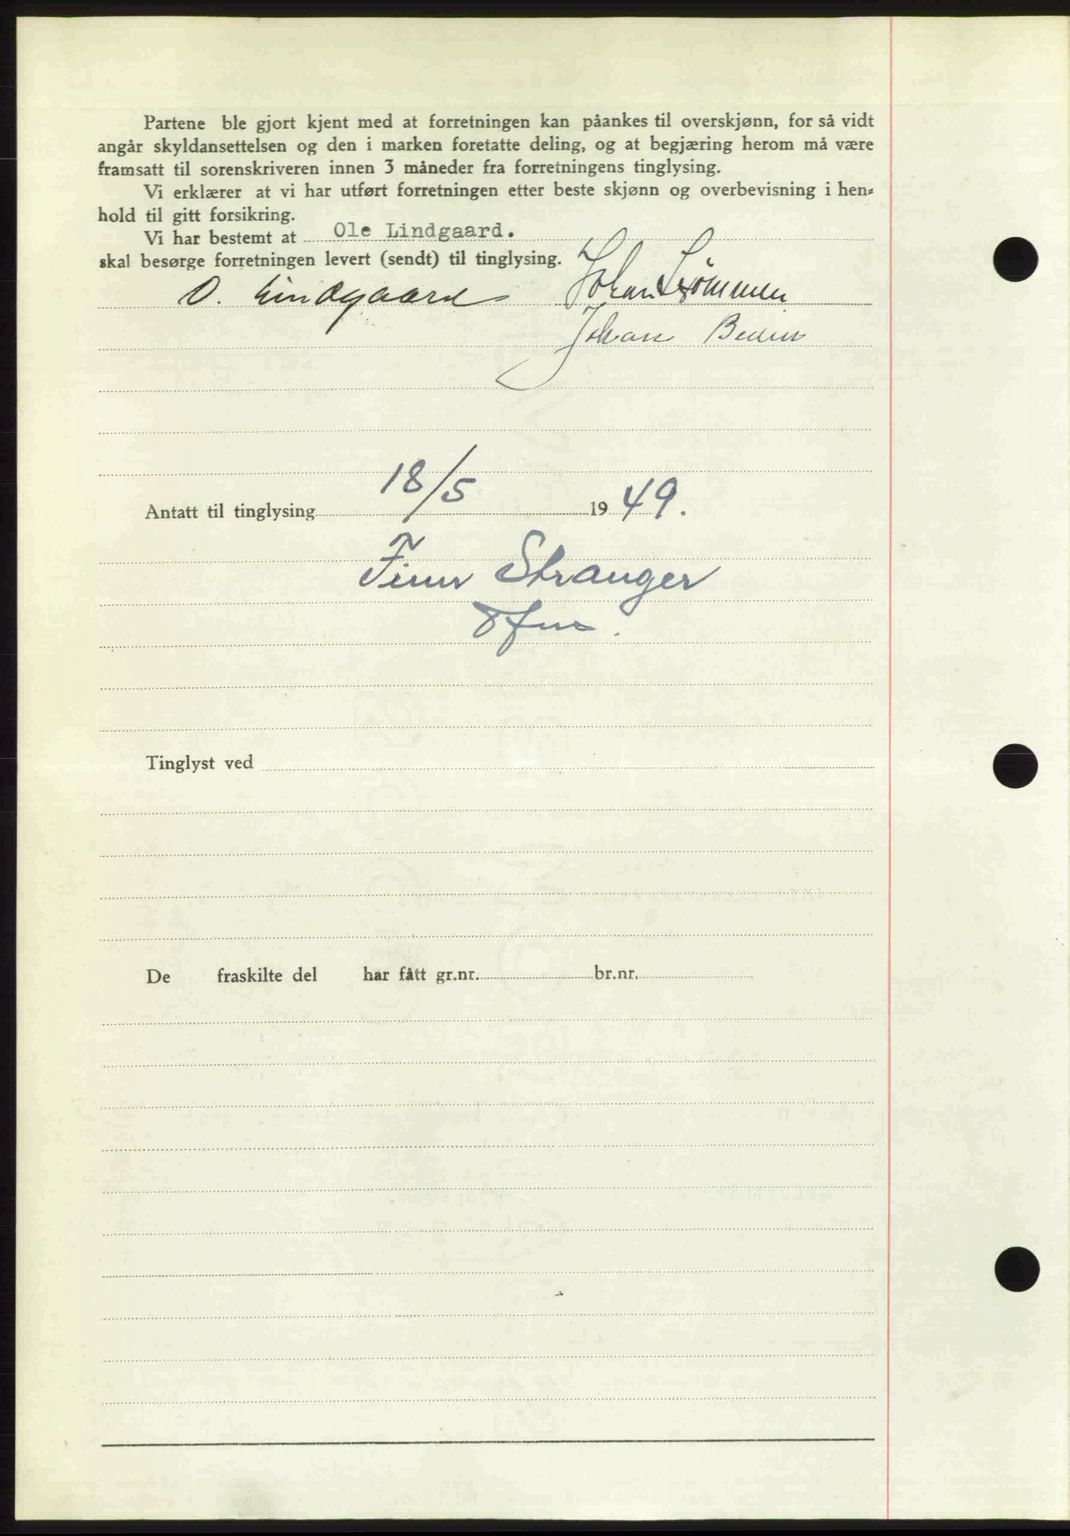 Partene ble gjort kjent med at forretningen kan påankes til overskjønn, for så vidt
angår skyldansettelsen og den i marken foretatte deling, og at begjæring herom må være
framsatt til sorenskriveren innen 3 måneder fra forretningens tinglysing.
Vi erklærer at vi har utført forretningen etter beste skjønn og overbevisning i hen-
hold til gitt forsikring.
Vi har bestemt at Ole Lindgaard.
skal besørge forretningen levert (sendt) til tinglysing.
O. Lindgaard Johan Strømmen
Johan
Antatt til tinglysing 18/5 1949.
Finn Stranger
Tinglyst ved
De fraskilte del har fått gr.nr. br.nr.